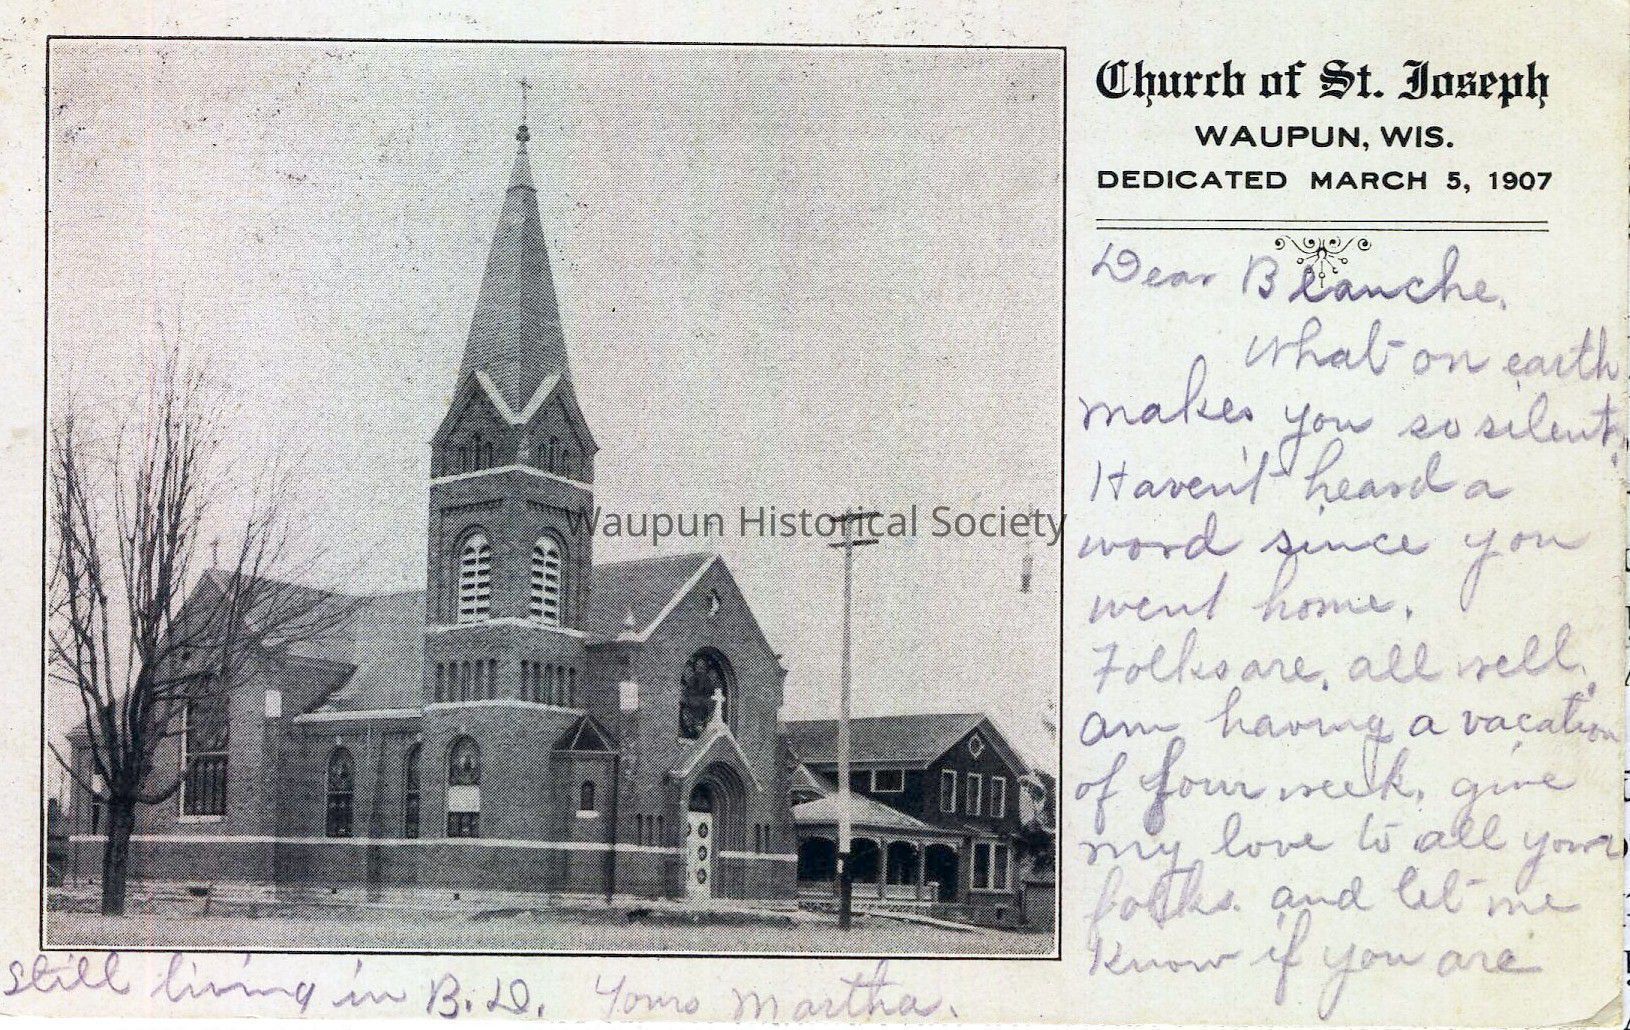 Church of St. Joseph
WAUPUN, WIS.
DEDICATED MARCH 5, 1907
Dear Blanche,
What on earth
makes you so silent.
Haven't heard a
word since you
went home.
Folks are, all well.
am having a vacation
of four week, give
my love to all your
folks. and let me
know if you are
still living in B.D. Yours Martha.
Waupun Historical Society